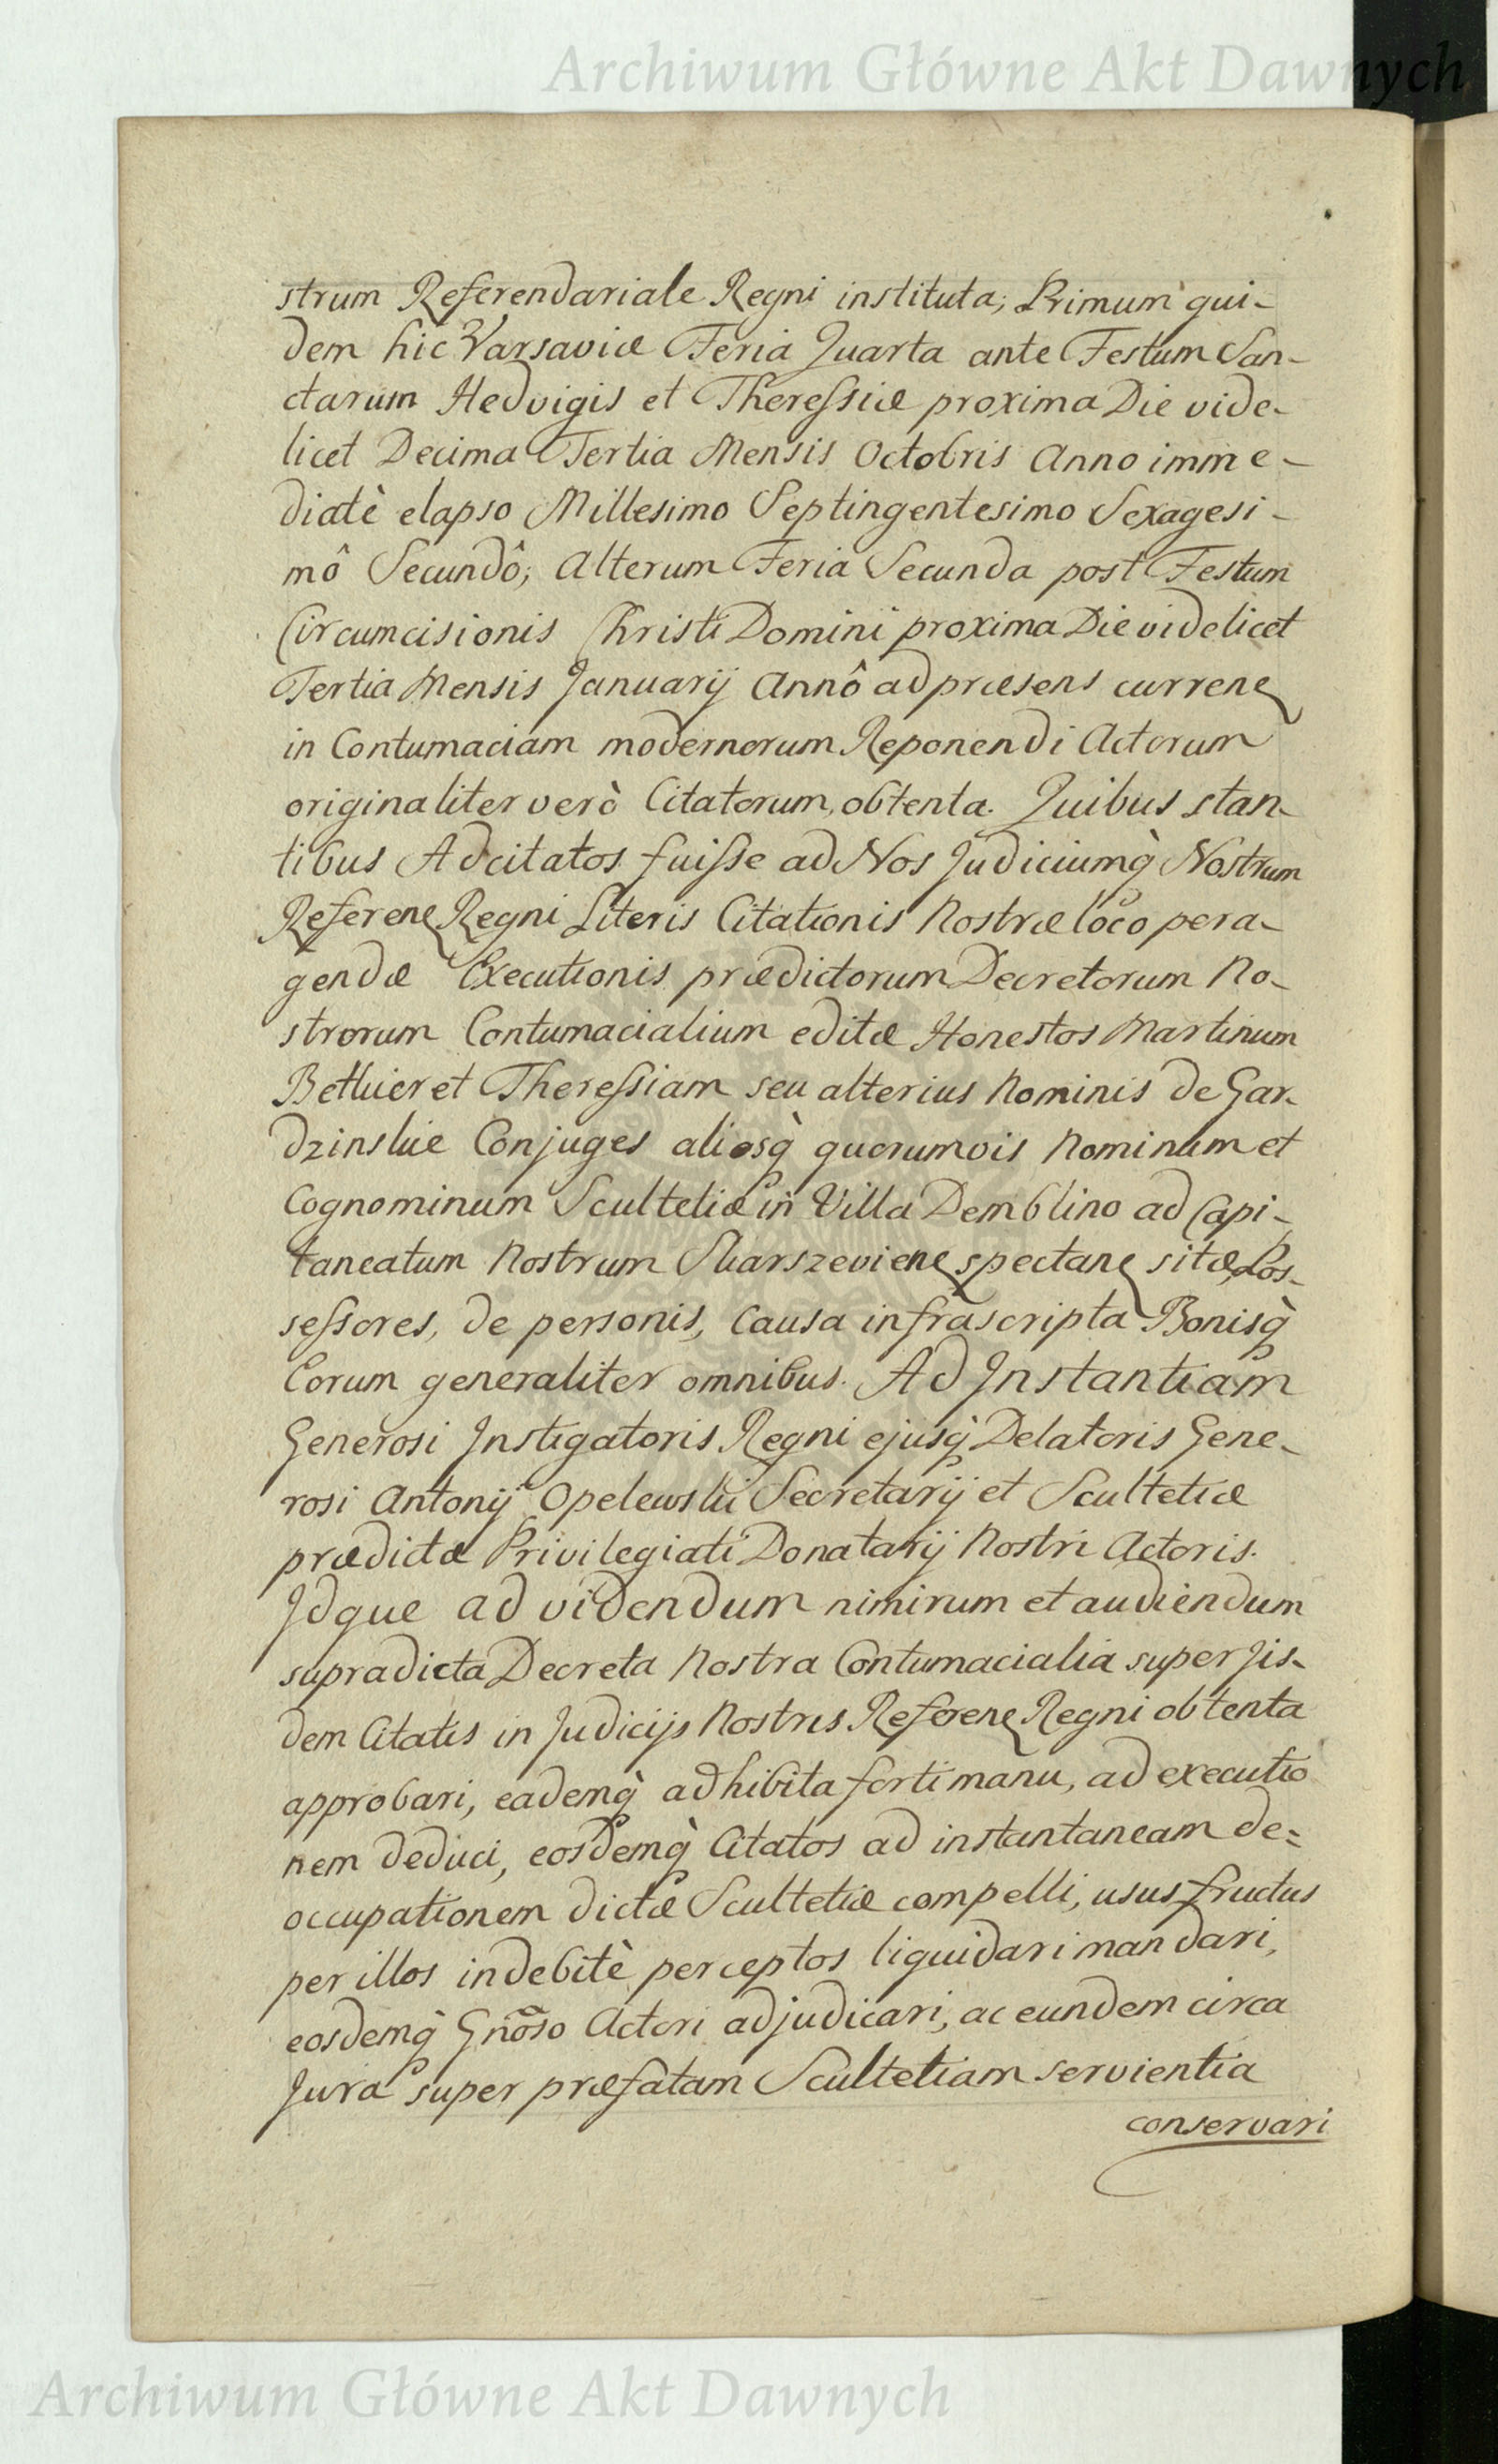 Archiwum Główne Akt Dawnych
strum Referendariale Regni instituta; Primum qui-
dem hic Varsaviæ Feria Quarta ante Festum San-
ctarum Hedvigis et Theressiæ proxima Die vide-
licet Decima Tertia Mensis Octobris Anno imme-
diatè elapso Millesimo Septingentesimo Sexagesi-
mô Secundô; Alterum Feria Secunda post Festum
Circumcisionis Christi Domini proxima Die videlicet
Tertia Mensis Januarij Annô ad præsens curren
in Contumaciam modernorum Reponendi Actorum
originaliter verò Citatorum, obtenta. Quibus stan-
tibus Adcitatos fuisse ad Nos Judiciumq̀ Nostrum
Referen Regni Literis Citationis Nostræ loco pera-
gendæ Executionis prædictorum Decretorum No-
strorum Contumacialium editæ Honestos Martinum
Betkier et Theressiam seu alterius Nominis de Gar-
dzinskie Conjuges aliosq̀ quorumvis Nominum et
Cognominum Scultetiæ in Villa Demblino ad Capi-
taneatum Nostrum Skarszevien spectan sitæ, Pos-
sessores, de personis, causa infrascripta Bonisq̀
Eorum generaliter omnibus. Ad Instantiam
Generosi Instigatoris Regni ejusq̀ Delatoris Gene-
rosi Antonij Opelewski Secretarij et Scultetiæ
prædictæ Privilegiati Donatarij Nostri Actoris.
Idque ad videndum nimirum et audiendum
supradicta Decreta Nostra Contumacialia super Jis-
dem Citatis in Judicijs Nostris Referen Regni obtenta
approbari, eademq̀ adhibita forti manu, ad executio
nem deduci, eosdemq̀ Citatos ad instantaneam de=
occupationem dictæ Scultetiæ compelli, usus fructus
per illos indebitè perceptos liquidari mandari,
eosdemq̀ Gnõso Actori adjudicari, ac eundem circa
Jura super præfatam Scultetiam servientia
conservari
Archiwum Główne Akt Dawnych